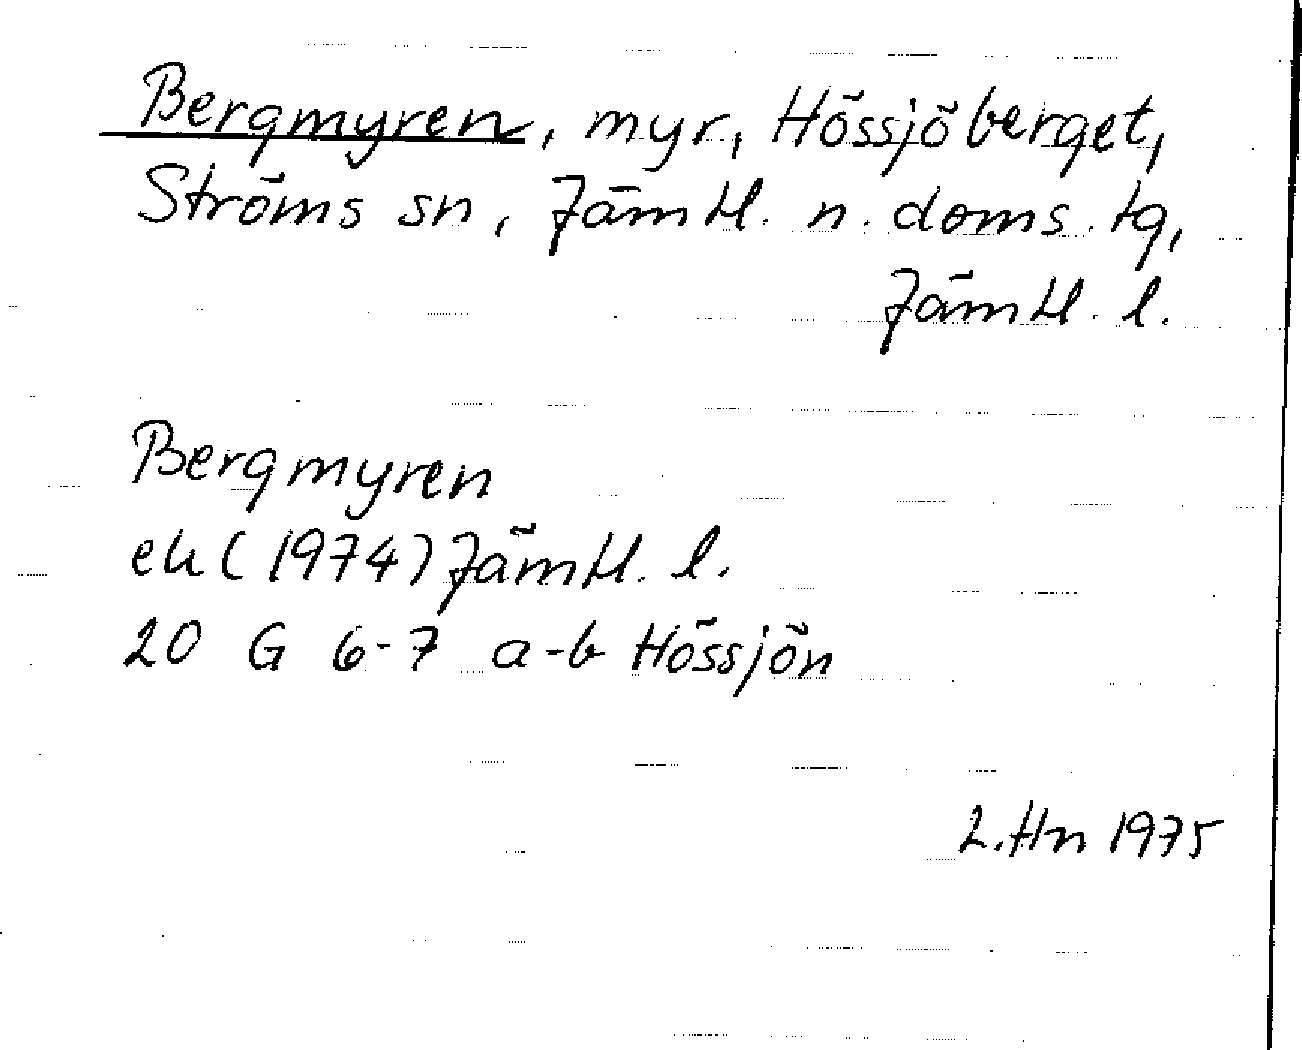 Bergmyren, myr, Hössjöberget,
Ströms sn, Jämtl. n. doms. tg,
Jämtl. l.
Bergmyren
ek (1974) Jämtl. l.
20 G 6-7 a-b Hössjön
L. Hn 1975